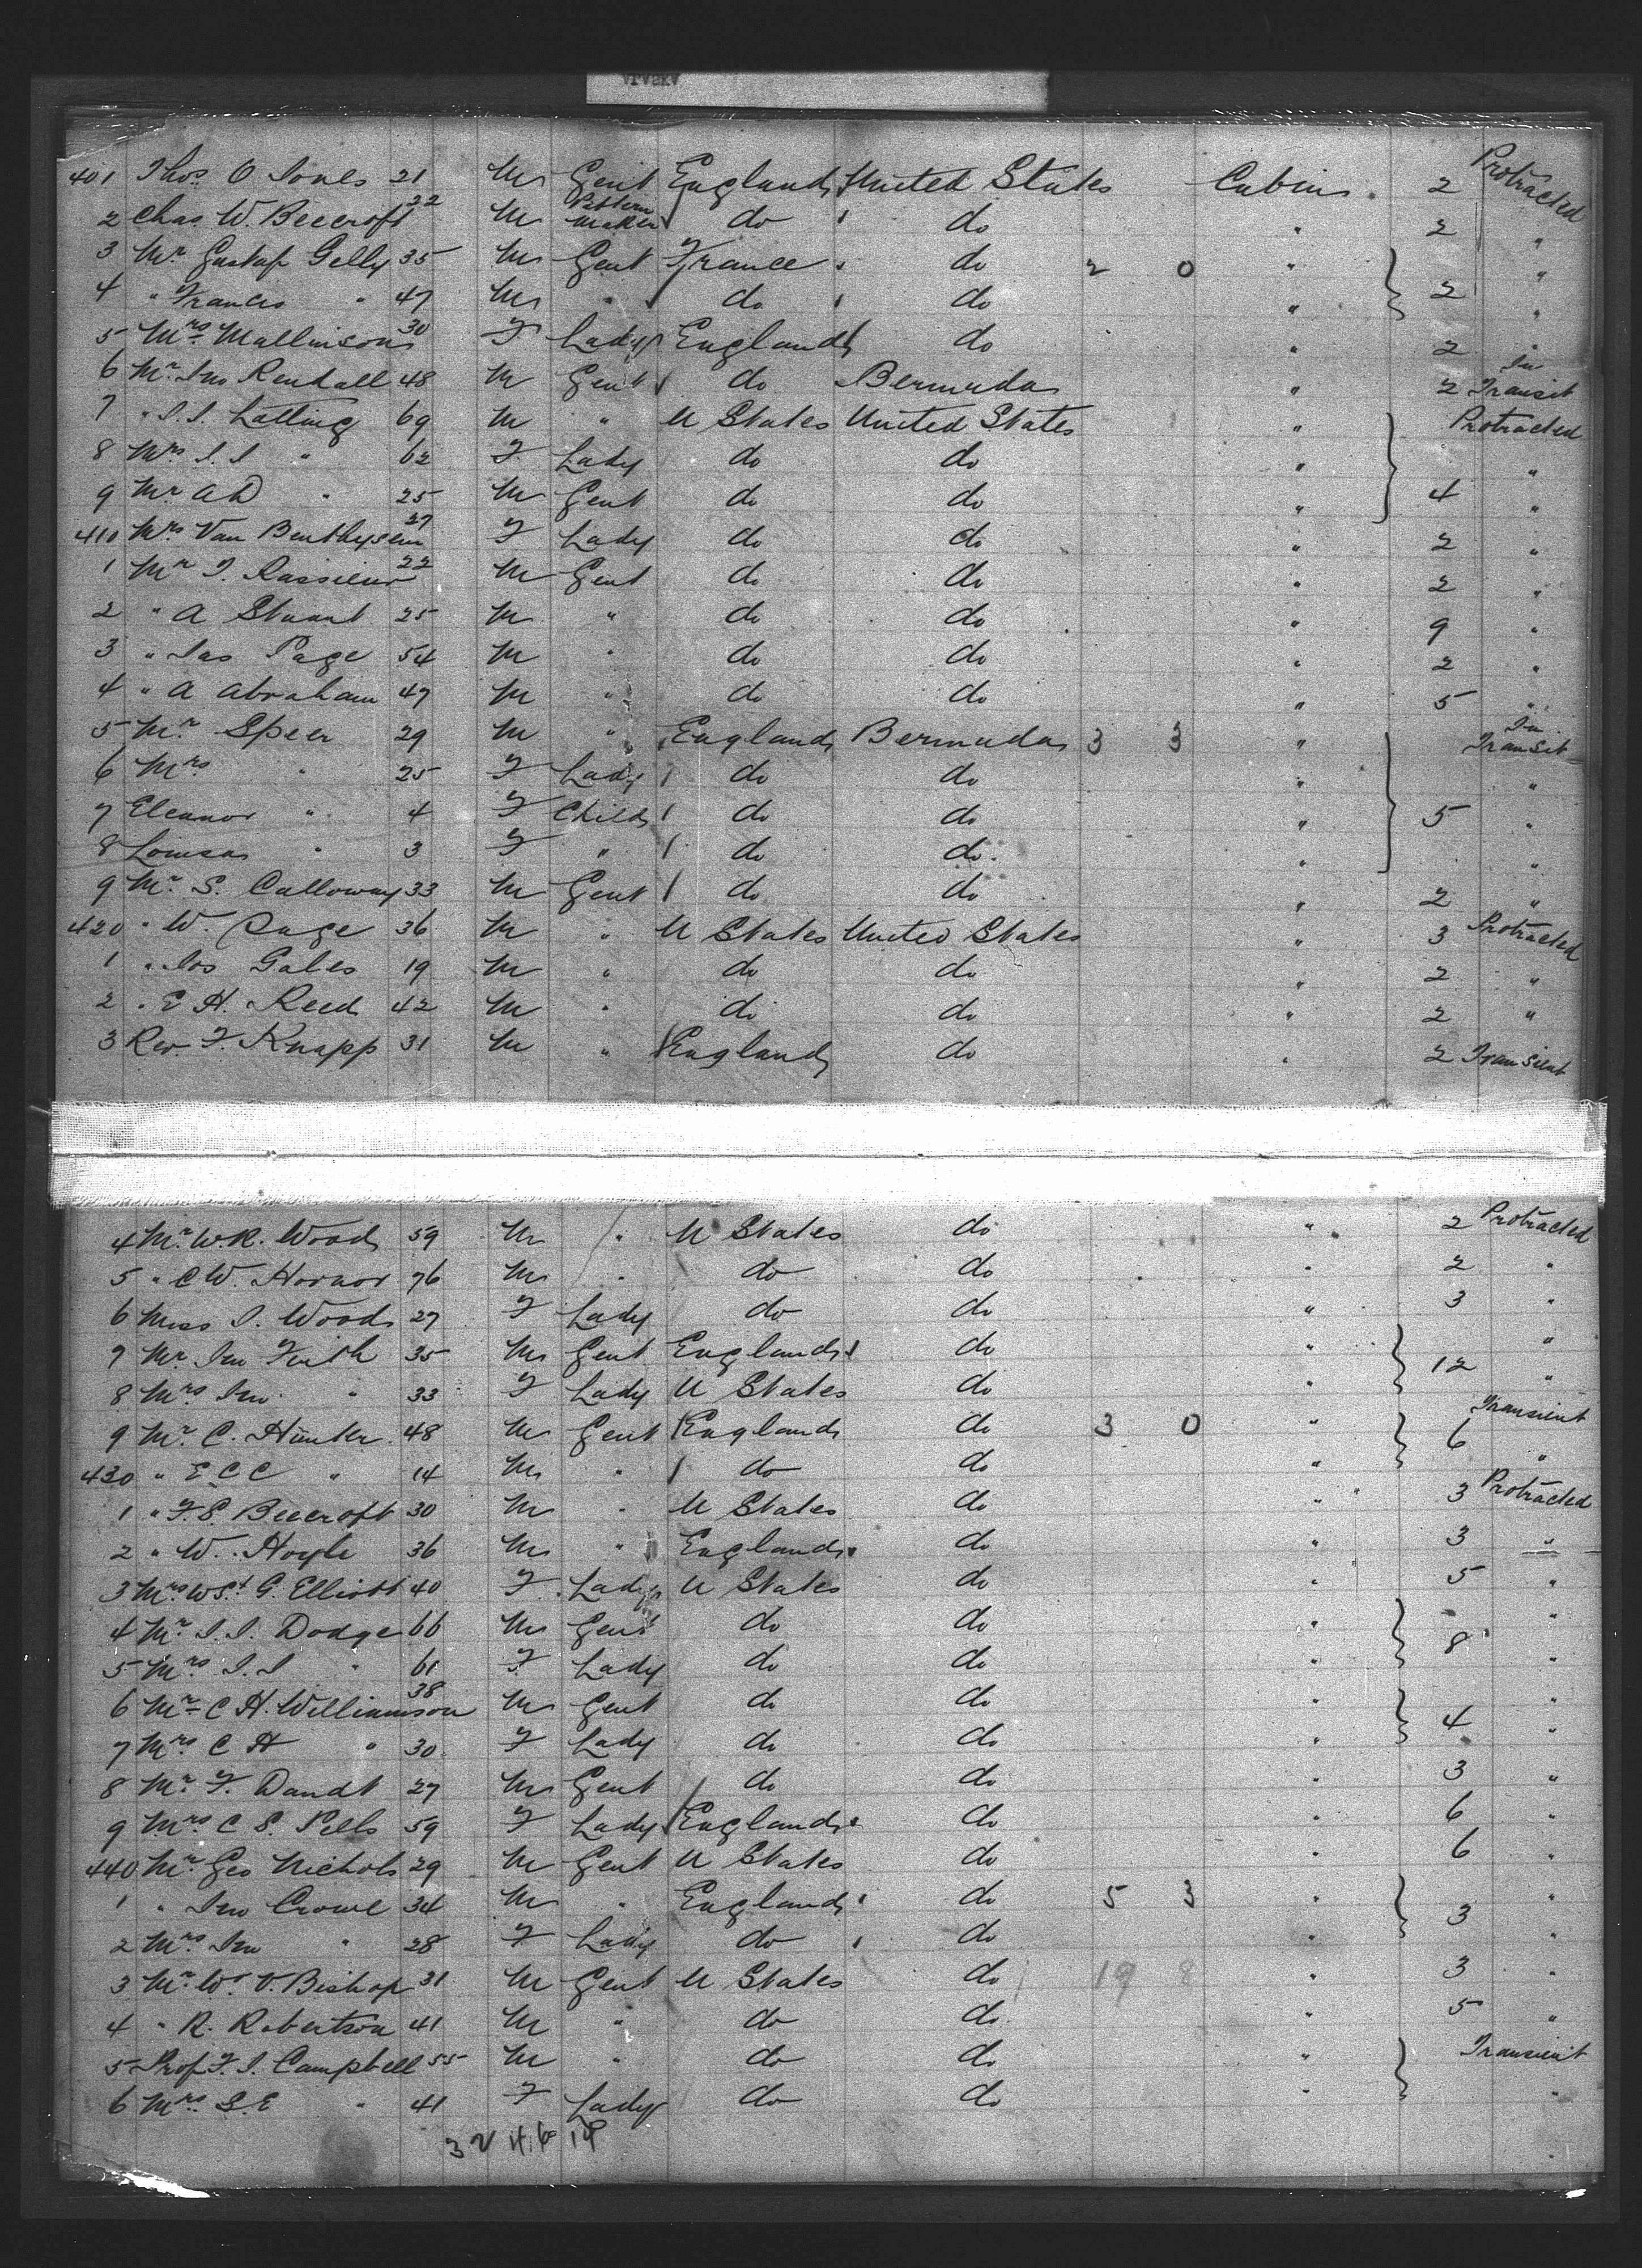 401 Thos. O Jones 21 M Gent England United States Cabin 2 Protracted
2 Chas. W. Beecroft 22 M Pattern Maker do do " 2 "
3 Mr Gustaf Gelly 35 M Gent France do 2 0 " "
4 " Francis " 47 M " do do " 2 "
5 Mrs Mallinson 30 F Lady England do " 2 "
6 Mr. Jno Rendall 48 M Gent do Bermuda " 2 In Transit
7 " J.J. Latting 69 M " U States United States " Protracted
8 Mrs J.J " 62 F Lady do do " "
9 Mr A D " 25 M Gent do do " 4 "
410 Mrs Van Benthysen 27 F Lady do do " 2 "
1 Mr J. Rassieur 22 M Gent do do " 2 "
2 " A Stuart 25 M " do do " 9 "
3 " Jas Page 54 M " do do " 2 "
4 " A Abraham 47 M " do do " 5 "
5 Mr. Speer 29 M " England Bermuda 3 3 " In Transit
6 Mrs " 25 F Lady do do " "
7 Eleanor " 4 F Child do do " 5 "
8 Louisa " 3 F " do do " "
9 Mr. S. Calloway 33 M Gent do do " 2 "
420 " W. Page 36 M " U States United States " 3 Protracted
1 " Jos Gales 19 M " do do " 2 "
2 " E H. Reed 42 M " do do " 2 "
3 Rev. F. Knapp 31 M " England do " 2 Transient
4 Mr. W.R. Wood 59 M " U States do " 2 Protracted
5 " C W. Hornor 76 M " do do " 2 "
6 Miss J. Wood 27 F Lady do do " 3 "
7 Mr Jno Firth 35 M Gent England do " "
8 Mrs Jno " 33 F Lady U States do " 12 "
9 Mr. C. Hunter 48 M Gent England do 3 0 " Transient
430 " E C C " 14 M " do do " 6 "
1 " F. S Beecroft 30 M " U States do " 3 Protracted
2 " W. Hoyle 36 M " England do " 3 "
3 Mrs W St. G. Elliott 40 F Lady U States do " 5 "
4 Mr J.J. Dodge 66 M Gent do do " "
5 Mrs J.J " 61 F Lady do do " 8 "
6 Mr C H. Williamson 38 M Gent do do " "
7 Mrs C H " 30 F Lady do do " 4 "
8 Mr. F. Dandt 27 M Gent do do " 3 "
9 Mrs C S. Pells 59 F Lady England do " 6 "
440 Mr Geo Nichols 29 M Gent U States do " 6 "
1 " Jno Crowe 34 M " England do 5 3 " "
2 Mrs Jno " 28 F Lady do do " 3 "
3 Mr. W. V. Bishop 31 M Gent U States do 19 8 " 3 "
4 " R. Robertson 41 M " do do " 5 "
5 Prof F. J. Campbell 55 M " do do " Transient
6 Mrs S.E " 41 F Lady do do " "
32 H. 6 14